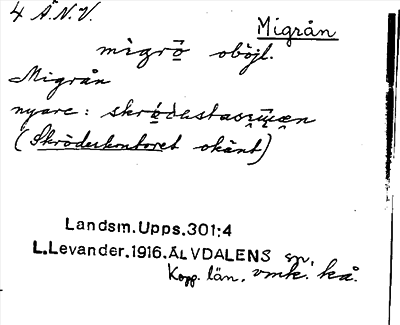 4 Å.N.V.
Migrån
migrō̤ oböjl.
Migrån
nyare:
(Skröderkontoret okänt)
Landsm.Upps.301:4
L.Levander.1916.ÄLVDALENS sn,
Kopp. län. vmk. kå.